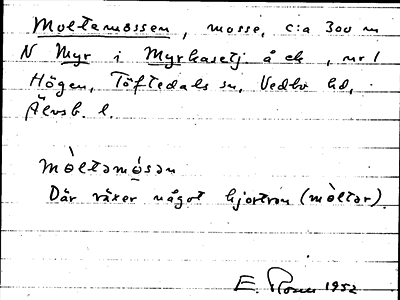 Moltemossen, mosse, c:a 300 m
N Myr i Myrkasetj å ek, nr 1
Högen, Töftedals sn, Vedbo hd,
Älvsb. l.
mòltəmósən
Där växer något hjortron (mòltər).
E. 1952